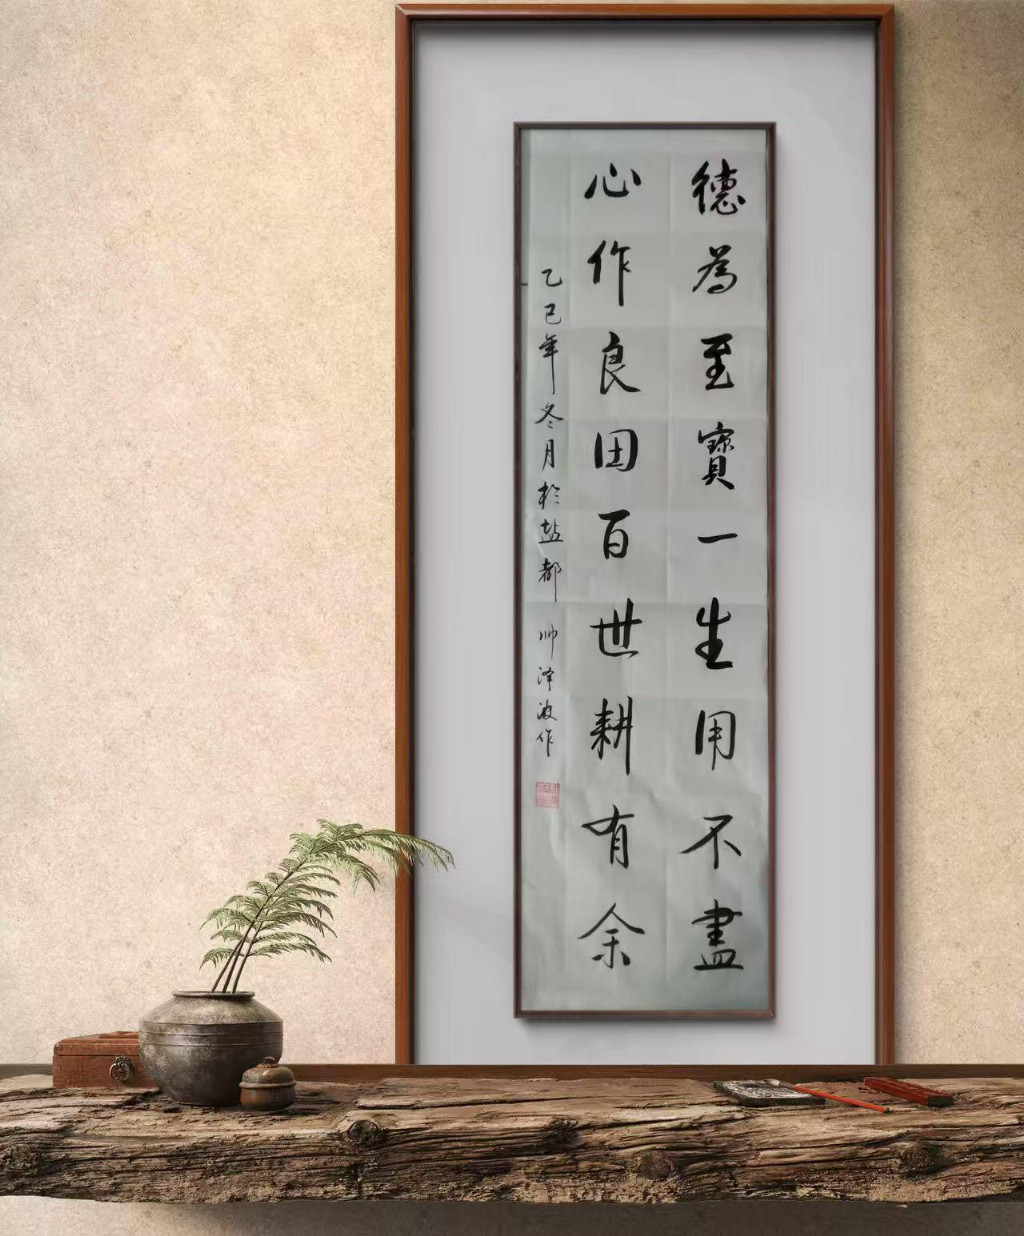 德為至寶一生用不盡
心作良田百世耕有余
乙巳年冬月於盐都 帅泽波作